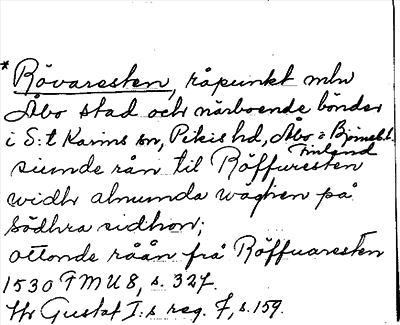 * Rövaresten, råpunkt mln
Åbo stad och närboende bönder
i S:t Karins sn, Pikis hd, Åbo o Bjöneb. l.
Finland
siunde rån til Röffuresten
widh almunda wäghen på
södhra sidhon;
ottonde råån frå Röffuaresten
1530 FMU 8, s. 327.
Hr Gustaf I:s reg. 7, s. 159.